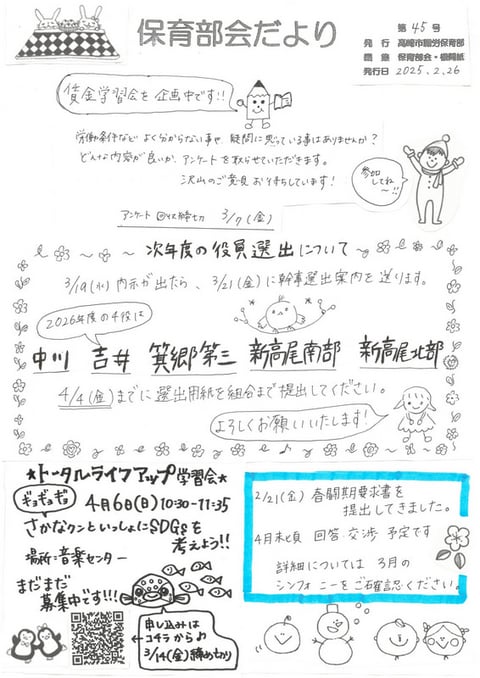 保育部会だより
第45号
発行 高崎市職労保育部
調進 保育部会・機関紙
発行日 2025.2.26
賃金学習会を企画中です!!
労働条件など よく分からない事や、疑問に思っている事はありませんか?
どんな内容が良いか、アンケートを取らせていただきます。
沢山のご意見お待ちしています!
参加してね〜!!
アンケート回収締切 3/7(金)
次年度の役員選出について
3/19(水)内示が出たら、3/21(金)に幹事選出案内を送ります。
2026年度の4役は
中川 吉井 箕郷第三 新高尾南部 新高尾北部
4/4(金)までに選出用紙を組合まで提出してください。
よろしくお願いいたします!
★トータルライフアップ学習会★
ギョギョギョ
4月6日(日)10:30-11:35
さかなクンといっしょにSDGsを
考えよう!!
場所:音楽センター
まだまだ
募集中です!!!
申し込みは
←コチラから♪
3/14(金)締めきり
2/21(金)春闘期要求書を
提出してきました。
4月末頃 回答・交渉 予定です
詳細については 3月の
シンフォニーをご確認ください。